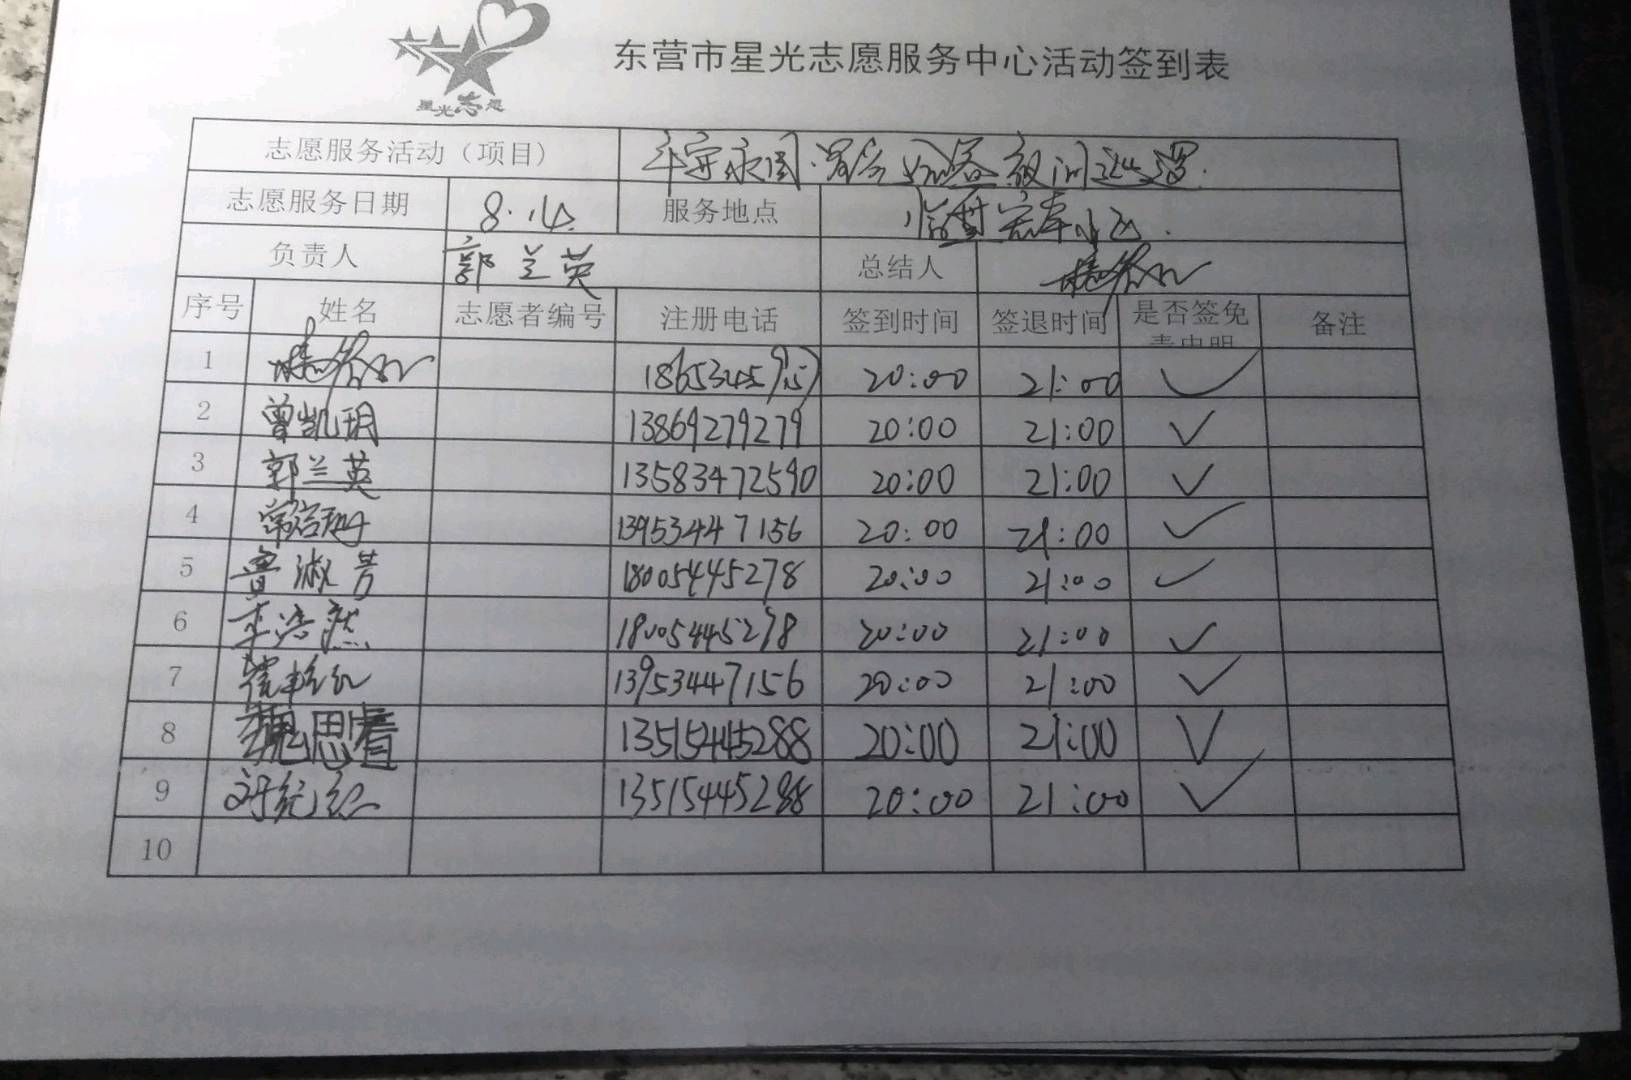 星光志愿
东营市星光志愿服务中心活动签到表
志愿服务活动（项目）
志愿服务日期 8.14 服务地点
负责人 郭兰英 总结人
序号 姓名 志愿者编号 注册电话 签到时间 签退时间 是否签免责申明 备注
1 20:00 21:00 ✓
2 曾凯玥 13869279279 20:00 21:00 ✓
3 郭兰英 13583472590 20:00 21:00 ✓
4 13953447156 20:00 21:00 ✓
5 鲁淑芳 18005445278 20:00 21:00 ✓
6 李浩然 18005445278 20:00 21:00 ✓
7 13953447156 20:00 21:00 ✓
8 魏思睿 13515445288 20:00 21:00 ✓
9 13515445288 20:00 21:00 ✓
10